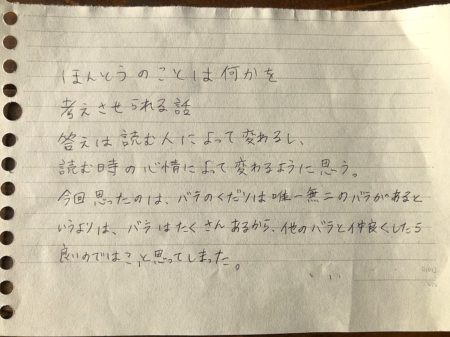 ほんとうのことは何かを
考えさせられる話
答えは読む人によって変わるし、
読む時の心情によって変わるように思う。
今回思ったのは、バラのくだりは唯一無二のバラがあると
いうよりは、バラはたくさんあるから、他のバラと仲良くしたら
良いのでは？と思ってしまった。